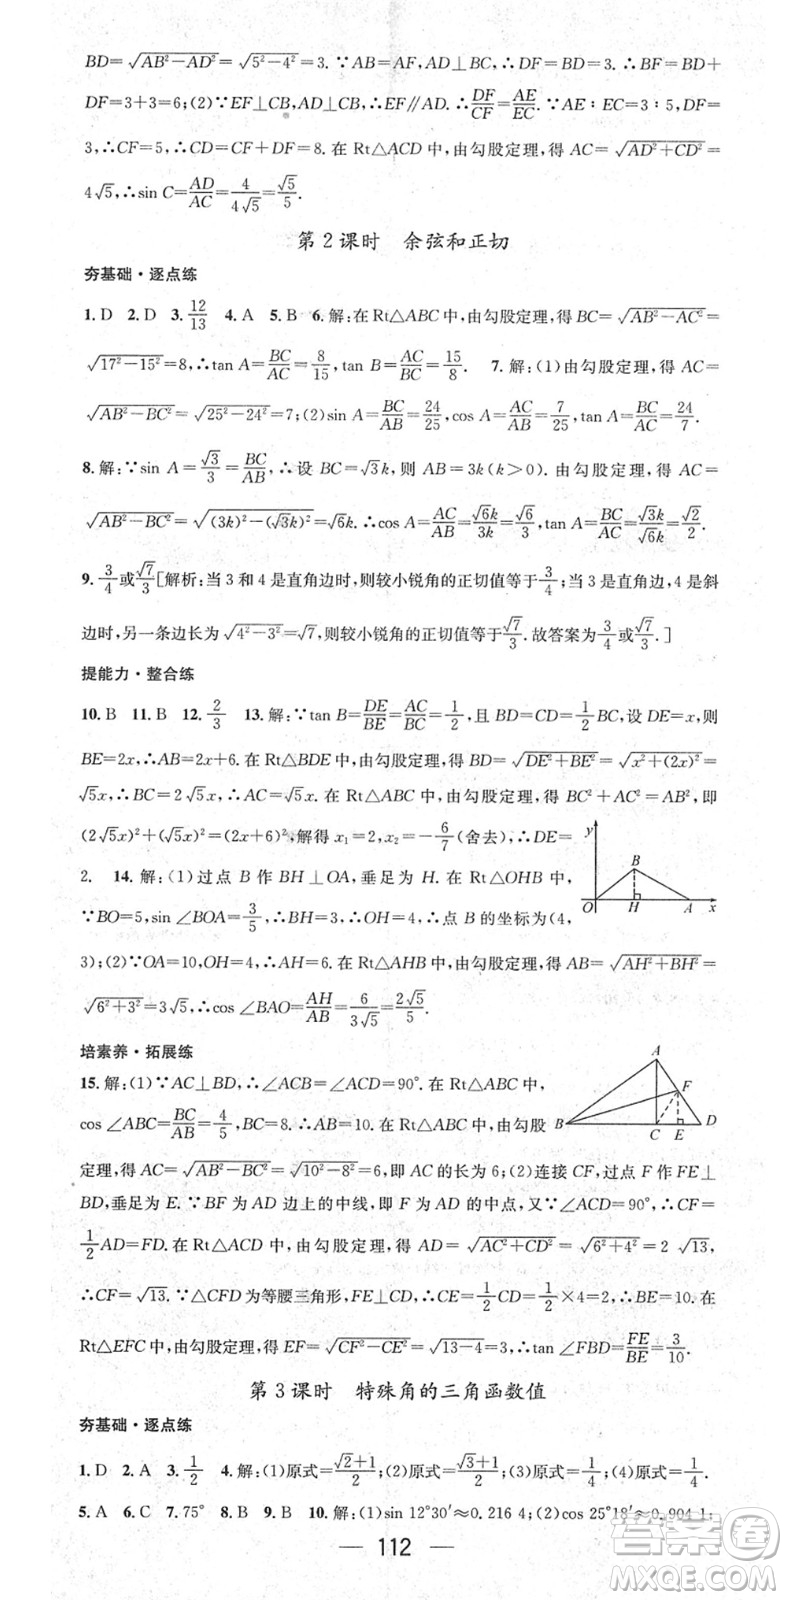 BD=√(AB²−AD²)=√(5²−4²)=3. ∵AB=AF, AD⊥BC, ∴DF=BD=3. ∴BF=BD+
DF=3+3=6;(2)∵EF⊥CB, AD⊥CB, ∴EF∥AD. ∴DF/CF=AE/EC. ∵AE∶EC=3∶5, DF=
3, ∴CF=5, ∴CD=CF+DF=8. 在 Rt△ACD 中,由勾股定理,得 AC=√(AD²+CD²)=
4√5, ∴sin C=AD/AC=4/(4√5)=√5/5.
第2课时 余弦和正切
夯基础·逐点练
1. D 2. D 3. 12/13 4. A 5. B 6. 解:在 Rt△ABC 中,由勾股定理,得 BC=√(AB²−AC²)=
√(17²−15²)=8, ∴tan A=BC/AC=8/15, tan B=AC/BC=15/8. 7. 解:(1)由勾股定理,得 AC=
√(AB²−BC²)=√(25²−24²)=7;(2)sin A=BC/AB=24/25, cos A=AC/AB=7/25, tan A=BC/AC=24/7.
8. 解:∵sin A=√3/3=BC/AB, ∴设 BC=√3k,则 AB=3k(k>0). 由勾股定理,得 AC=
√(AB²−BC²)=√((3k)²−(√3k)²)=√6k. ∴cos A=AC/AB=√6k/3k=√6/3, tan A=BC/AC=√3k/√6k=√2/2.
9. 3/4或√7/3[解析:当 3 和 4 是直角边时,则较小锐角的正切值等于3/4;当 3 是直角边,4 是斜
边时,另一条边长为√(4²−3²)=√7,则较小锐角的正切值等于√7/3. 故答案为3/4或√7/3.]
提能力·整合练
10. B 11. B 12. 2/3 13. 解:∵tan B=DE/BE=AC/BC=1/2,且 BD=CD=1/2BC,设 DE=x,则
BE=2x, ∴AB=2x+6. 在 Rt△BDE 中,由勾股定理,得 BD=√(DE²+BE²)=√(x²+(2x)²)=
√5x, ∴BC=2√5x, ∴AC=√5x. 在 Rt△ABC 中,由勾股定理,得 BC²+AC²=AB²,即
(2√5x)²+(√5x)²=(2x+6)²,解得 x₁=2, x₂=−6/7(舍去), ∴DE=
2. 14. 解:(1)过点 B 作 BH⊥OA,垂足为 H. 在 Rt△OHB 中,
∵BO=5, sin∠BOA=3/5, ∴BH=3, ∴OH=4, ∴点 B 的坐标为(4,
3);(2)∵OA=10, OH=4, ∴AH=6. 在 Rt△AHB 中,由勾股定理,得 AB=√(AH²+BH²)=
√(6²+3²)=3√5, ∴cos∠BAO=AH/AB=6/(3√5)=2√5/5.
y
B
O H A x
培素养·拓展练
15. 解:(1)∵AC⊥BD, ∴∠ACB=∠ACD=90°. 在 Rt△ABC 中,
cos∠ABC=BC/AB=4/5, BC=8, ∴AB=10. 在 Rt△ACB 中,由勾股
定理,得 AC=√(AB²−BC²)=√(10²−8²)=6,即 AC 的长度为 6;(2)连接 CF,过点 F 作 FE⊥
BD,垂足为 E. ∵BF 为 AD 边上的中线,即 F 为 AD 的中点,又∵∠ACD=90°, ∴CF=
1/2AD=FD. 在 Rt△ACD 中,由勾股定理,得 AD=√(AC²+CD²)=√(6²+4²)=2√13,
∴CF=√13. ∵△CFD 为等腰三角形,FE⊥CD, ∴CE=1/2CD=1/2×4=2, ∴BE=10. 在
Rt△EFC 中,由勾股定理,得 EF=√(CF²−CE²)=√(13−4)=3, ∴tan∠FBD=FE/BE=3/10.
A
F
B C E D
第3课时 特殊角的三角函数值
夯基础·逐点练
1. D 2. A 3. 1/2 4. 解:(1)原式=(√2+1)/2;(2)原式=(√3+1)/2;(3)原式=1/4;(4)原式=1/4.
5. A 6. C 7. 75° 8. B 9. B 10. 解:(1)sin 12°30′≈0.216 4;(2)cos 25°18′≈0.904 1;
— 112 —
答案圈
MXQE.COM